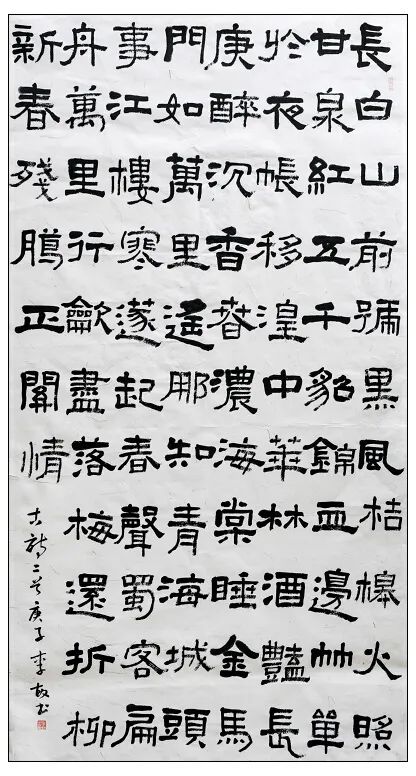 長白山前號黑風桔槔火照
甘泉紅五千貂錦血邊艸單
於夜帳移湟中華林酒豔長
庚醉沉香萅濃海棠睡金馬
門如萬里遙那知青海城頭
事江樓寒遂起春聲蜀客扁
舟萬里行龡盡落梅還折柳
新春殘臘正關情
二首庚子李